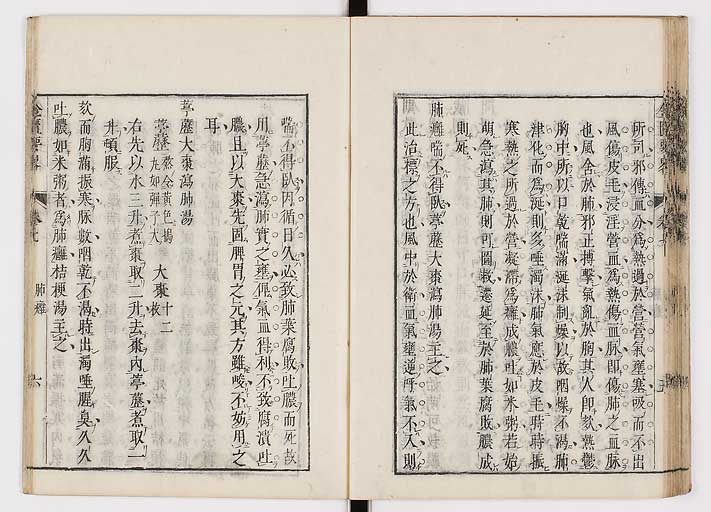 所司邪傳血分爲熱過於營營氣壅塞吸而不出
風傷皮毛浸淫營血爲熱傷血脉即傷肺之血脉
也風舍於肺邪正搏擊氣亂於胸其人即欬熱鬱
胸中所以口乾喘滿涎沫制燥以故咽燥不渴肺
津化而爲涎則多唾濁沫肺氣應於皮毛時時振
寒熱之所過於營凝滯爲癰成膿吐如米粥若始
萌急瀉其肺則可圖救遷延至於肺葉腐敗膿成
則死
肺癰喘不得臥葶藶大棗瀉肺湯主之
此治標之方也風中於衛血氣壅逆呼氣不入則
喘不得臥因循日久必致肺葉腐敗吐膿而死故
用葶藶急瀉肺實之壅俾氣血得利不致腐潰吐
膿且以大棗先固脾胃之元其方雖峻不妨用之
耳
葶藶大棗瀉肺湯
葶藶 熬令黃色搗丸如彈子大 大棗 十二枚
右先以水三升煮棗取二升去棗内葶藶煮取一
升頓服
欬而胸滿振寒脉數咽乾不渴時出濁唾腥臭久久
吐膿如米粥者爲肺癰桔梗湯主之
金匱要畧 卷七 肺癰 六